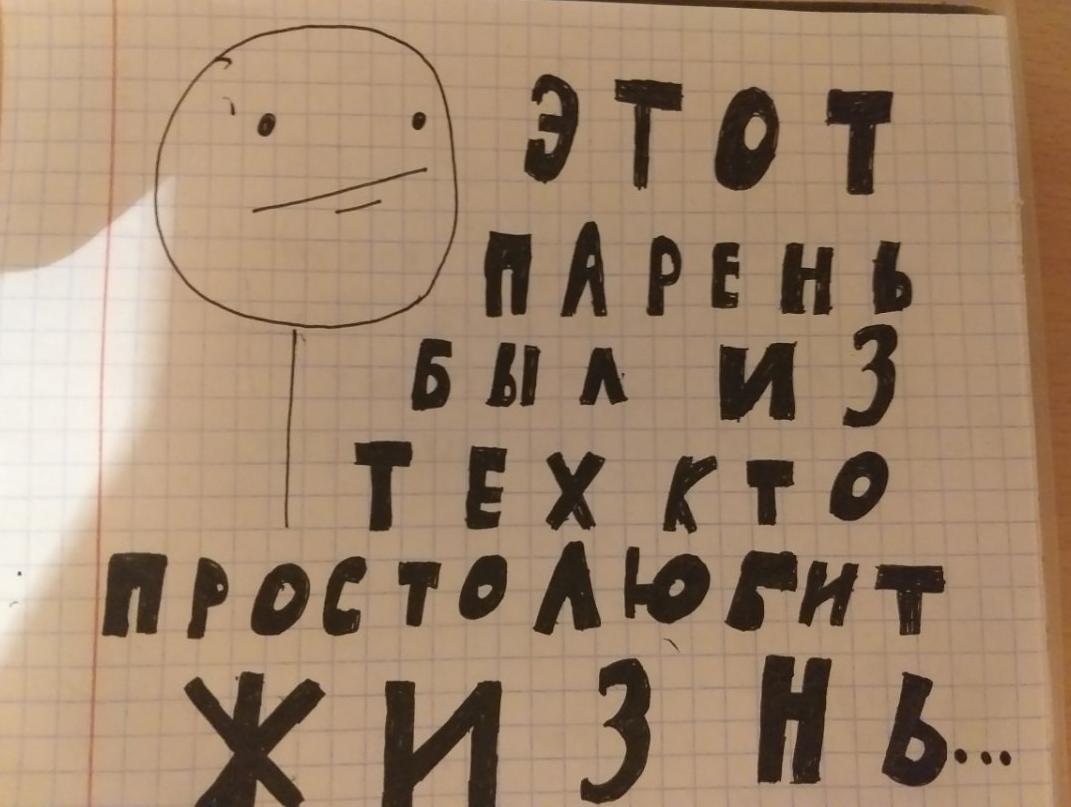 ЭТОТ
ПАРЕНЬ
БЫЛ ИЗ
ТЕХ КТО
ПРОСТО ЛЮБИТ
ЖИЗНЬ...